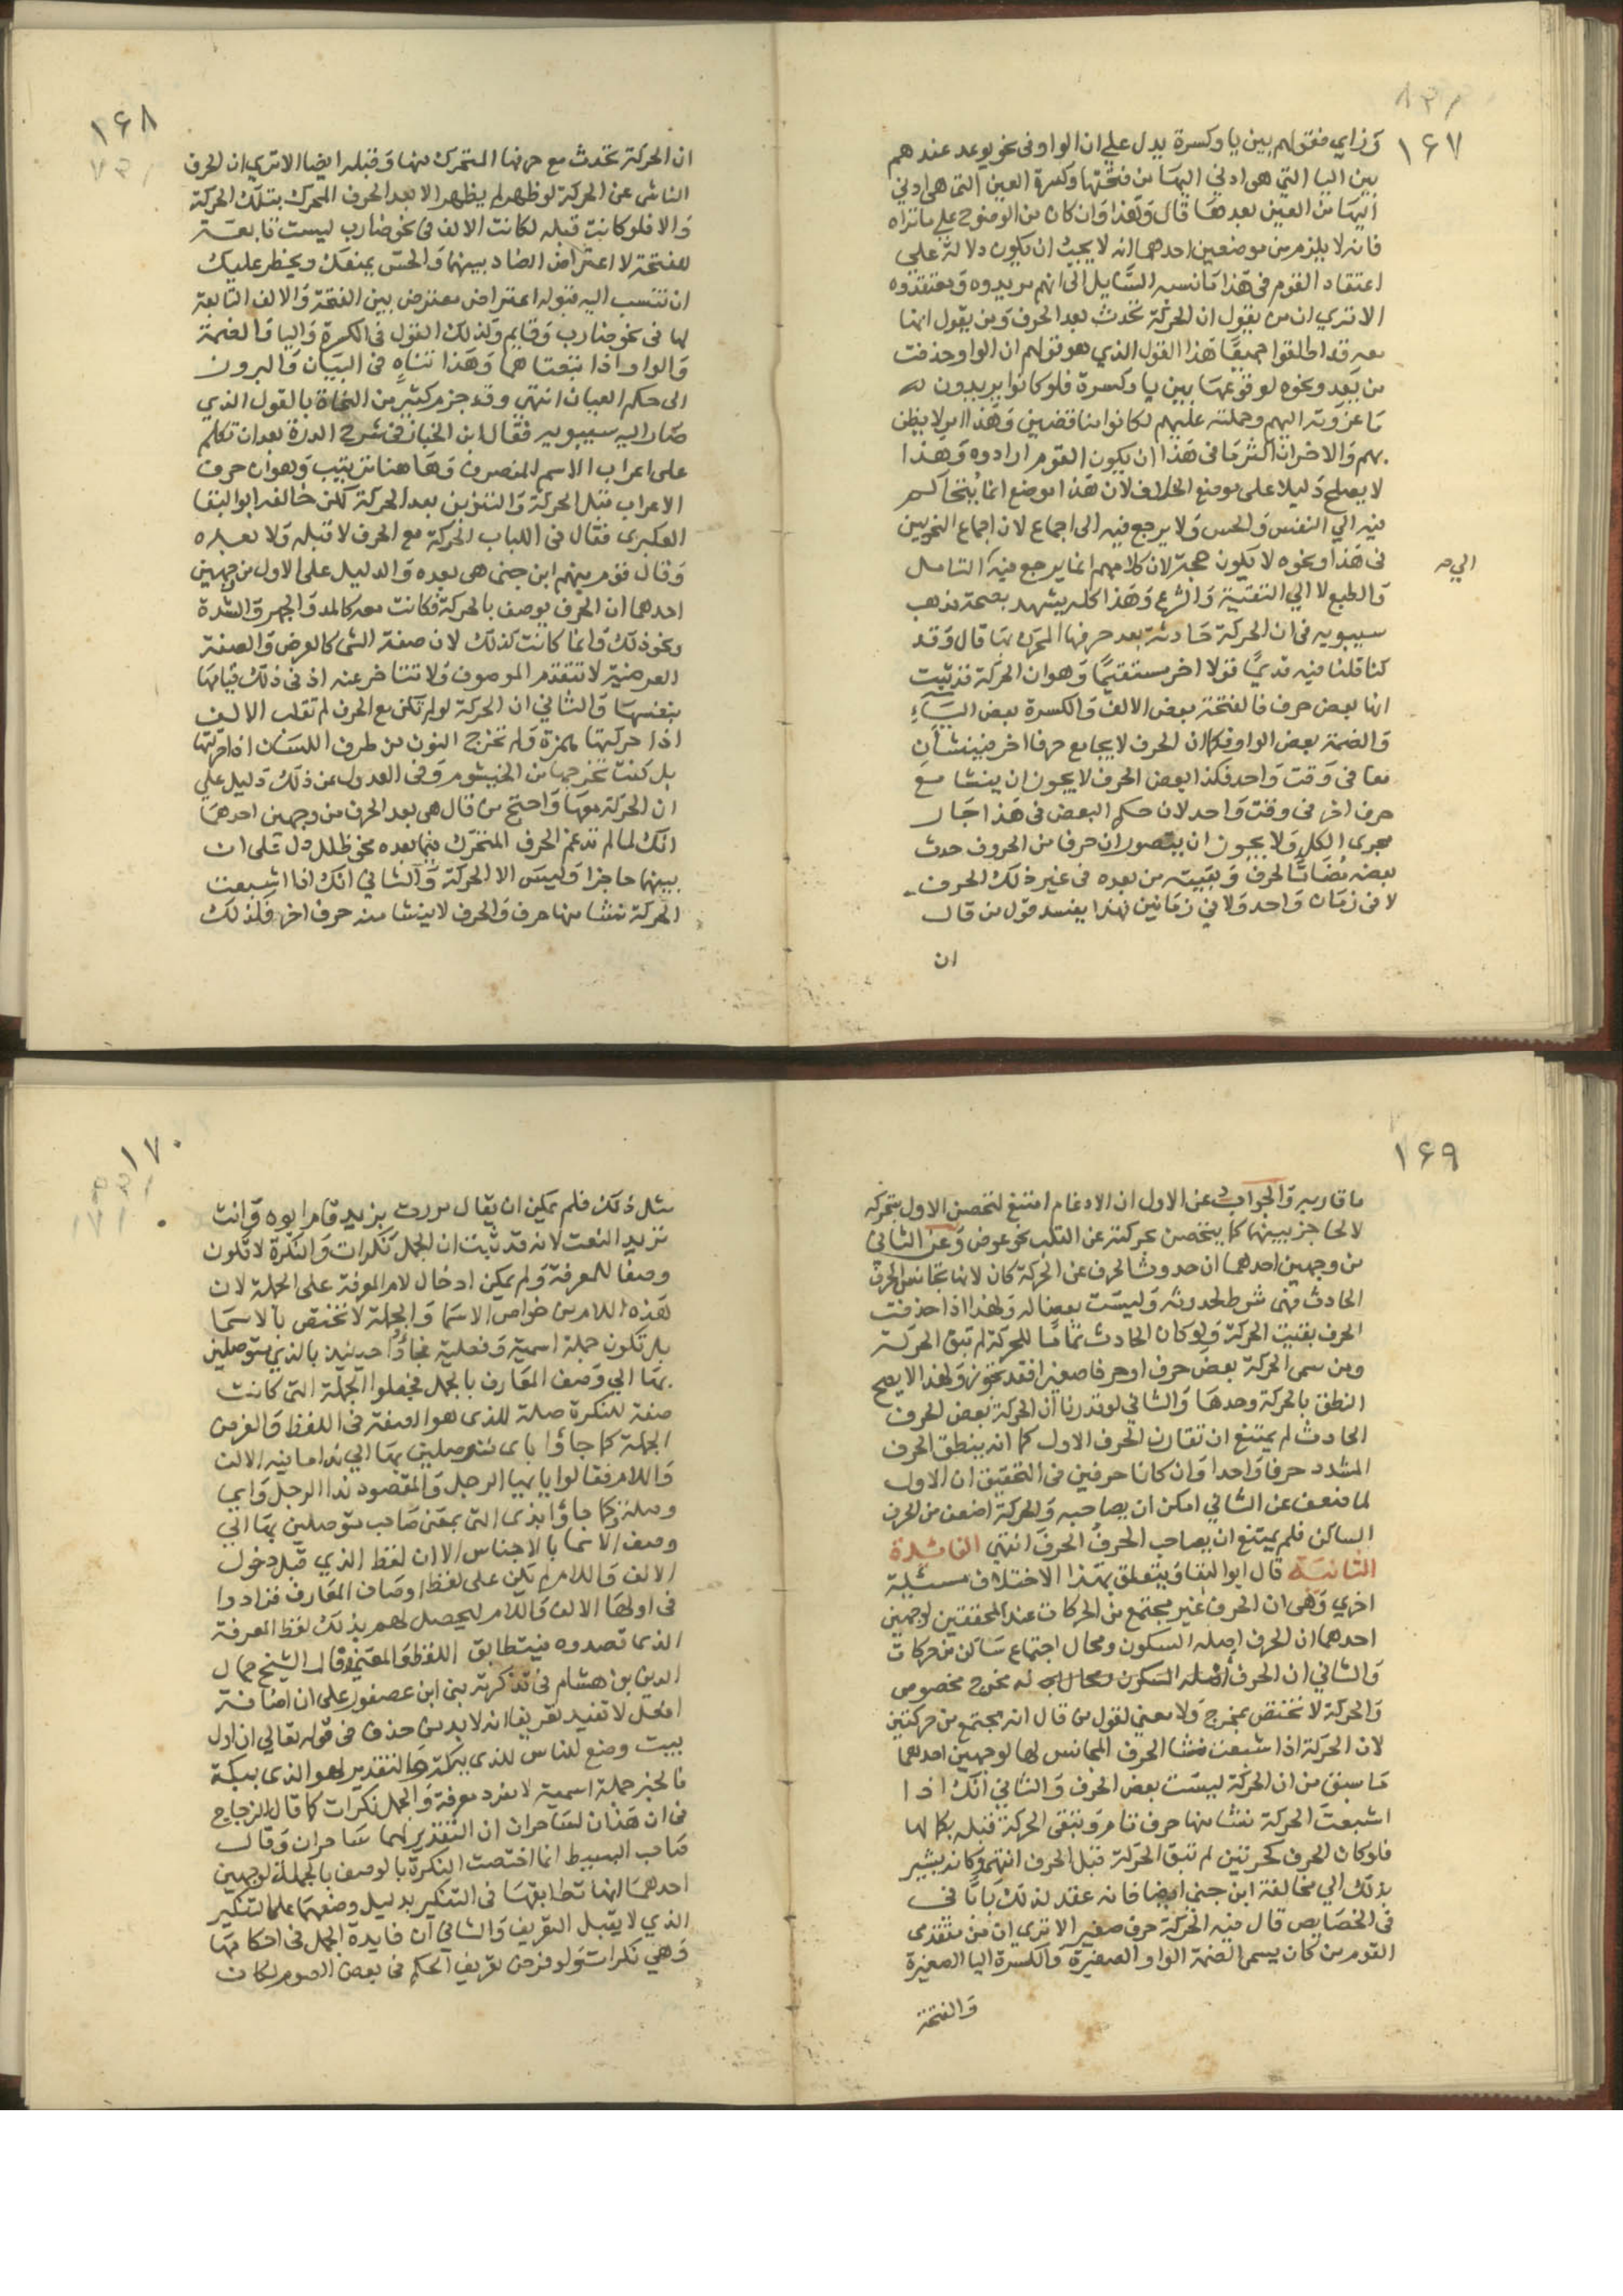 ١٦٧
وزاي فقولهم بين يا وكسرة يدل علي ان الواو في نحو يوعد عندهم
بين اليا التي هي ادني اليها من فتحتها وكسرة العين التي هي ادني
اليها من العين بعدها قال وهذا وان كان من الوضوح علي ما تراه
فانه لا يلزم من موضعين احدهما انه لا يجب ان يكون دلالة على
اعتقاد القوم في هذا ما نسبه السايل الى انهم مريدوه ومعتقدوه
الا تري ان من يقول ان الحركة تحدث بعد الحرف ومن يقول انها
معه قد اطلقوا جميعا هذا القول الذي هو قولهم ان الواو حذفت
من يعد ونحوه لوقوعها بين يا وكسرة فلو كانوا يريدون
ما عزوته اليهم وحملته عليهم لكانوا مناقضين وهذا امر لا يظن
بهم والاخر ان اكثر ما في هذا ان يكون القوم ارادوه وهذا
لا يصلح دليلا على موضع الخلاف لان هذا موضع انما يتحاكم
فيه الي النفس والحس ولا يرجع فيه الى اجماع لان اجماع النحويين
في هذا ونحوه لا يكون حجة لان كلا منهم انما يرجع فيه التامل
الي صح
والطبع لا الي التقية والشرع وهذا كله يشهد بصحة مذهب
سيبويه في ان الحركة حادثة بعد حرفها المحرك بها قال وقد
كنا قلنا فيه قديما قولا اخر مستقيما وهو ان الحركة قد ثبت
انها بعض حرف فالفتحة بعض الالف والكسرة بعض الياء
والضمة بعض الواو فكما ان الحرف لا يجامع حرفا اخر فينشان
معا في وقت واحد فكذا بعض الحرف لا يجوز ان ينشا مع
حرف اخر في وقت واحد لان حكم البعض في هذا جار
مجرى الكل ولا يجوز ان يتصور ان حرفا من الحروف حدث
بعضه مضافا لحرف وبقيته من بعده في غير ذلك الحرف
لا في زمان واحد ولا في زمانين فهذا يفسد قول من قال
ان
١٦٨
ان الحركة تحدث مع حرفها المتحرك بها وقبله ايضا الا تري ان الحرف
الناشي عن الحركة لو ظهر لم يظهر الا بعد الحرف المحرك بتلك الحركة
والا فلو كانت قبله لكانت الالف في نحو ضارب ليست تابعة
للفتحة لاعتراض الضاد بينهما والحس يمنعك ويحظر عليك
ان تنسب اليه قبوله اعتراض معترض بين الفتحة والالف التابعة
لها في نحو ضارب وقايم وكذلك القول في الكسرة واليا والضمة
والواو اذا تبعتاهما وهذا تناه في البيان والبروز
الى حكم العيان انتهي وقد جزم كثير من النحاة بالقول الذي
صار اليه سيبويه فقال ابن الخباز في شرح الدرة بعد ان تكلم
على اعراب الاسم المنصرف وها هنا ترتيب وهو ان حرف
الاعراب قبل الحركة والتنوين بعد الحركة لكن خالفه ابو البقا
العكبري فقال في اللباب الحركة مع الحرف لا قبله ولا بعده
وقال قوم منهم ابن جني هي بعده والدليل على الاول من وجهين
احدهما ان الحرف يوصف بالحركة فكانت معه كالمد والجهر والشدة
ونحو ذلك وانما كانت كذلك لان صفة الشي كالعرض والصفة
العرضية لا تتقدم الموصوف ولا تتاخر عنه اذ في ذلك قيامها
بنفسها والثاني ان الحركة لو لم تكن مع الحرف لم تقلب الالف
اذا حركتها همزة ولم تخرج النون من طرف اللسان اذا حركتها
بل كنت تخرجها من الخيشوم وفي العدول عن ذلك دليل علي
ان الحركة معها واحتج من قال هي بعد الحرف من وجهين احدهما
انك لما لم تدغم الحرف المتحرك فيما بعده نحو ظلل دل على ان
بينهما حاجزا وليس الا الحركة والثاني انك اذا اشبعت
الحركة نشا منها حرف والحرف لا ينشا منه حرف اخر فلذلك
١٦٩
ما قاربه والجواب عن الاول ان الادغام امتنع لتحصن الاول بتحركه
لا لحاجز بينهما كما يتحصن بحركته عن القلب نحو عوض وعن الثاني
من وجهين احدهما ان حدوث الحرف عن الحركة كان لانها تجانس الحرف
الحادث فهي شرط لحدوثه وليست بعضا له ولهذا اذا حذفت
الحرف بقيت الحركة ولو كان الحادث تماما للحركة لم تبق الحركة
ومن سمى الحركة بعض حرف او حرفا صغيرا فقد تجوز ولهذا لا يصح
النطق بالحركة وحدها والثاني لو قدرنا ان الحركة بعض الحرف
الحادث لم يمتنع ان تقارن الحرف الاول كما انه ينطق بالحرف
المشدد حرفا واحدا وان كانا حرفين في التحقيق الا ان الاول
لما ضعف عن الثاني امكن ان يصاحبه والحركة اضعف من الحرف
الساكن فلم يمتنع ان يصاحب الحرف الحرف انتهي الفائدة
الثانية قال ابو البقا ويتعلق بهذا الاختلاف مسئلة
اخري وهي ان الحرف غير مجتمع من الحركات عند المحققين لوجهين
احدهما ان الحرف اصله السكون ومحال اجتماع ساكن من حركات
والثاني ان الحرف له مخرج مخصوص
والحركة لا تختص بمخرج ولا معني لقول من قال انه مجتمع من حركتين
لان الحركة اذا اشبعت نشا الحرف المجانس لها لوجهين احدهما
ما سبق من ان الحركة ليست بعض الحرف والثاني انك اذا
اشبعت الحركة نشا منها حرف تام وتبقي الحركة قبله بكمالها
فلو كان الحرف كحركتين لم تبق الحركة قبل الحرف انتهي وكانه يشير
بذلك الي مخالفة ابن جني ايضا فانه عقد لذلك بابا في
في الخصايص قال فيه الحركة حرف صغير الا تري ان من متقدمي
القوم من كان يسمى الضمة الواو الصغيرة والكسرة اليا الصغيرة
والفتحة
١٧٠
مثل ذلك فلم يمكن ان يقال مررت بزيد قام ابوه وانت
تريد النعت لانه قد ثبت ان الجمل نكرات والنكرة لا تكون
وصفا للمعرفة ولم يمكن ادخال لام المعرفة على الجملة لان
هذه اللام من خواص الاسما والجملة لا تختص بالاسما
بل تكون جملة اسمية وفعلية فجاؤا حينيذ بالذي متوصلين
بها الي وصف المعارف بالجمل فجعلوا الجملة التي كانت
صفة للنكرة صلة للذي هو الصفة في اللفظ والغرض
الجملة كما جاؤا باي متوصلين بها الي ندا ما فيه الالف
واللام فقالوا يا ايها الرجل والمقصود ندا الرجل واي
وصلة وكما جاؤا بذي التي بمعني صاحب متوصلين بها الي
وصف الاسما بالاجناس الا ان لفظ الذي قبل دخول
الالف واللام لم يكن على لفظ اوصاف المعارف فزادوا
في اولها الالف واللام ليحصل لهم بذلك لفظ المعرفة
الذي قصدوه فيتطابق اللفظ والمعني وقال الشيخ جمال
الدين بن هشام في تذكرته بني ابن عصفور على ان اضافة
افعل لا تفيد تعريفا انه لا بد من حذف في قوله تعالي ان اول
بيت وضع للناس للذي ببكة والتقدير لهو الذي ببكة
فالخبر جملة اسمية لا مفرد معرفة والجمل نكرات كما قال الزجاج
في ان هذان لساحران ان التقدير لهما ساحران وقال
صاحب البسيط انما اختصت النكرة بالوصف بالجملة لوجهين
احدهما انها تطابقها في التنكير بدليل وضعها على التنكير
الذي لا يقبل التعريف والثاني ان فايدة الجمل في احكامها
وهي نكرات ولو فرض تعريف الحكم في بعض الصور لكان